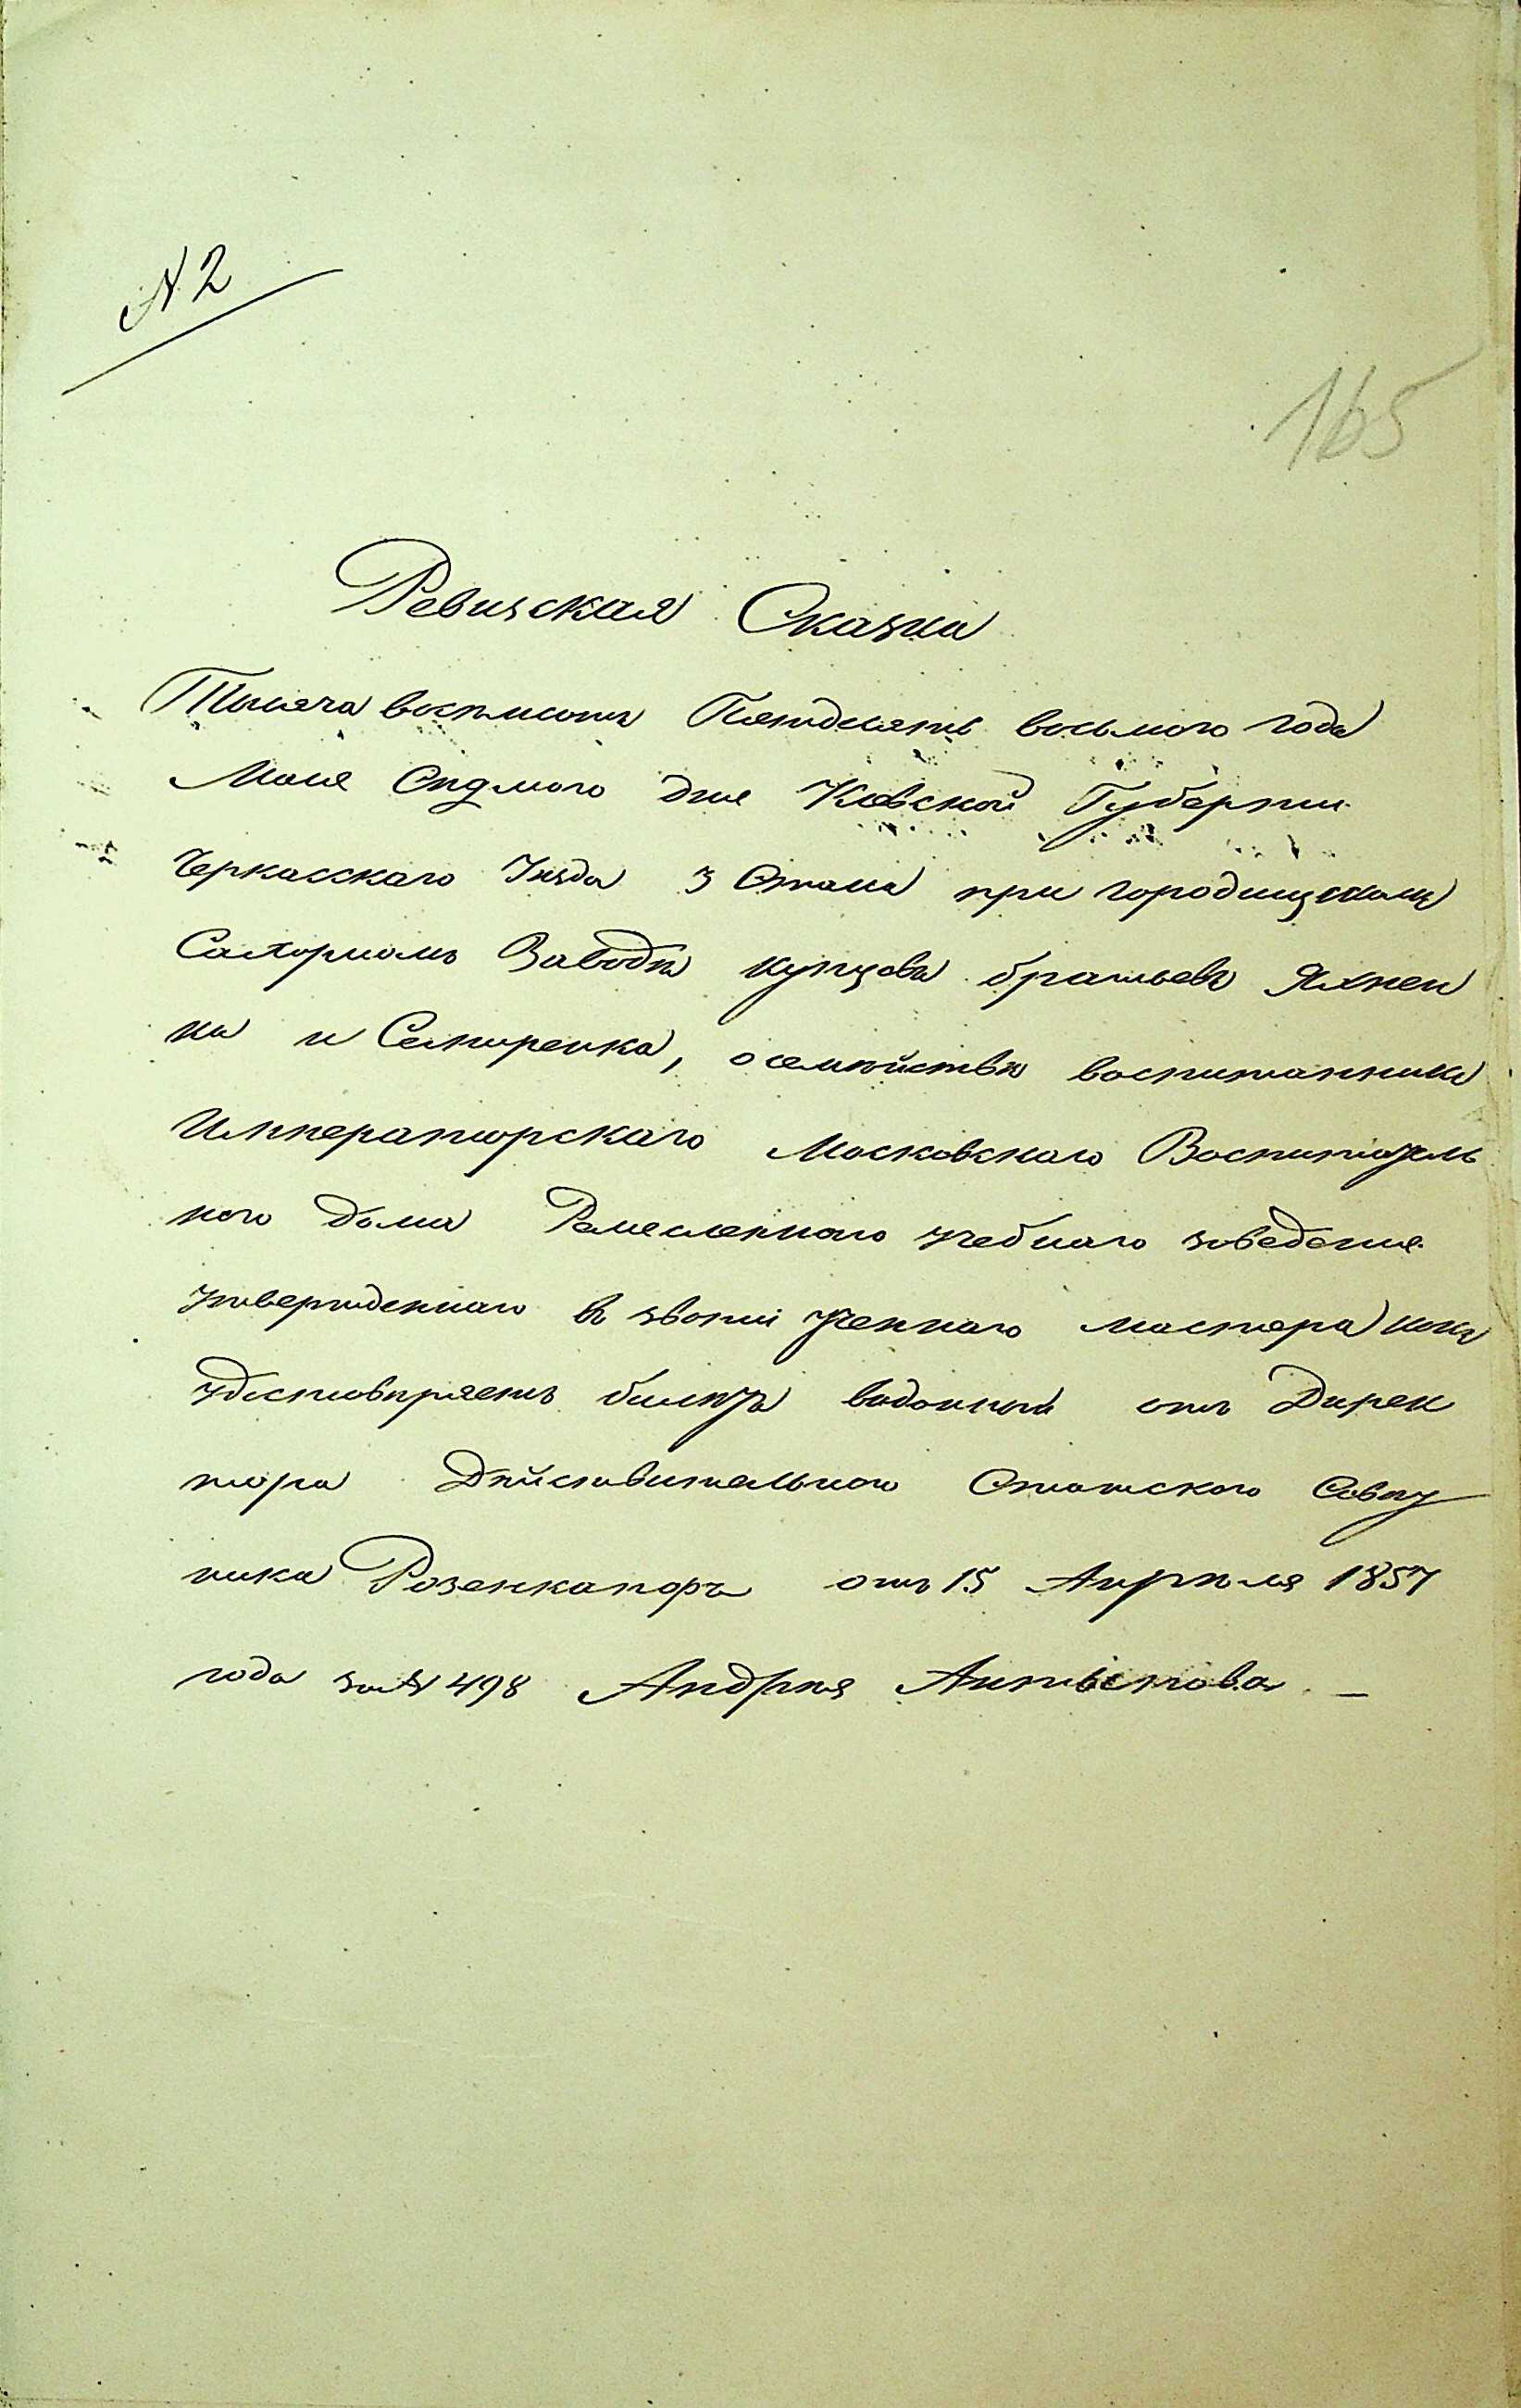 № 2
165
Ревизская Сказка
Тысяча восемьсотъ Пятдесятъ восьмого года
Мая Седмого дня Киевской Губернии
Черкасскаго Уезда 3 Стана при Городищскомъ
Сахарномъ Заводѣ купцовъ братьевъ Яхнен
ка и Семиренка, о семѣйствѣ воспитанника
Императорскаго Московскаго Воспитатель
наго дома Ремесленнаго учебнаго заведения
утвержденнаго въ звании ученнаго мастера какъ
удостовѣряетъ билетъ виданный отъ Дирек
тора Дѣйствительного Статского Совѣт
ника Розенкапфъ отъ 15 Апрѣля 1857
года за № 498 Андрея